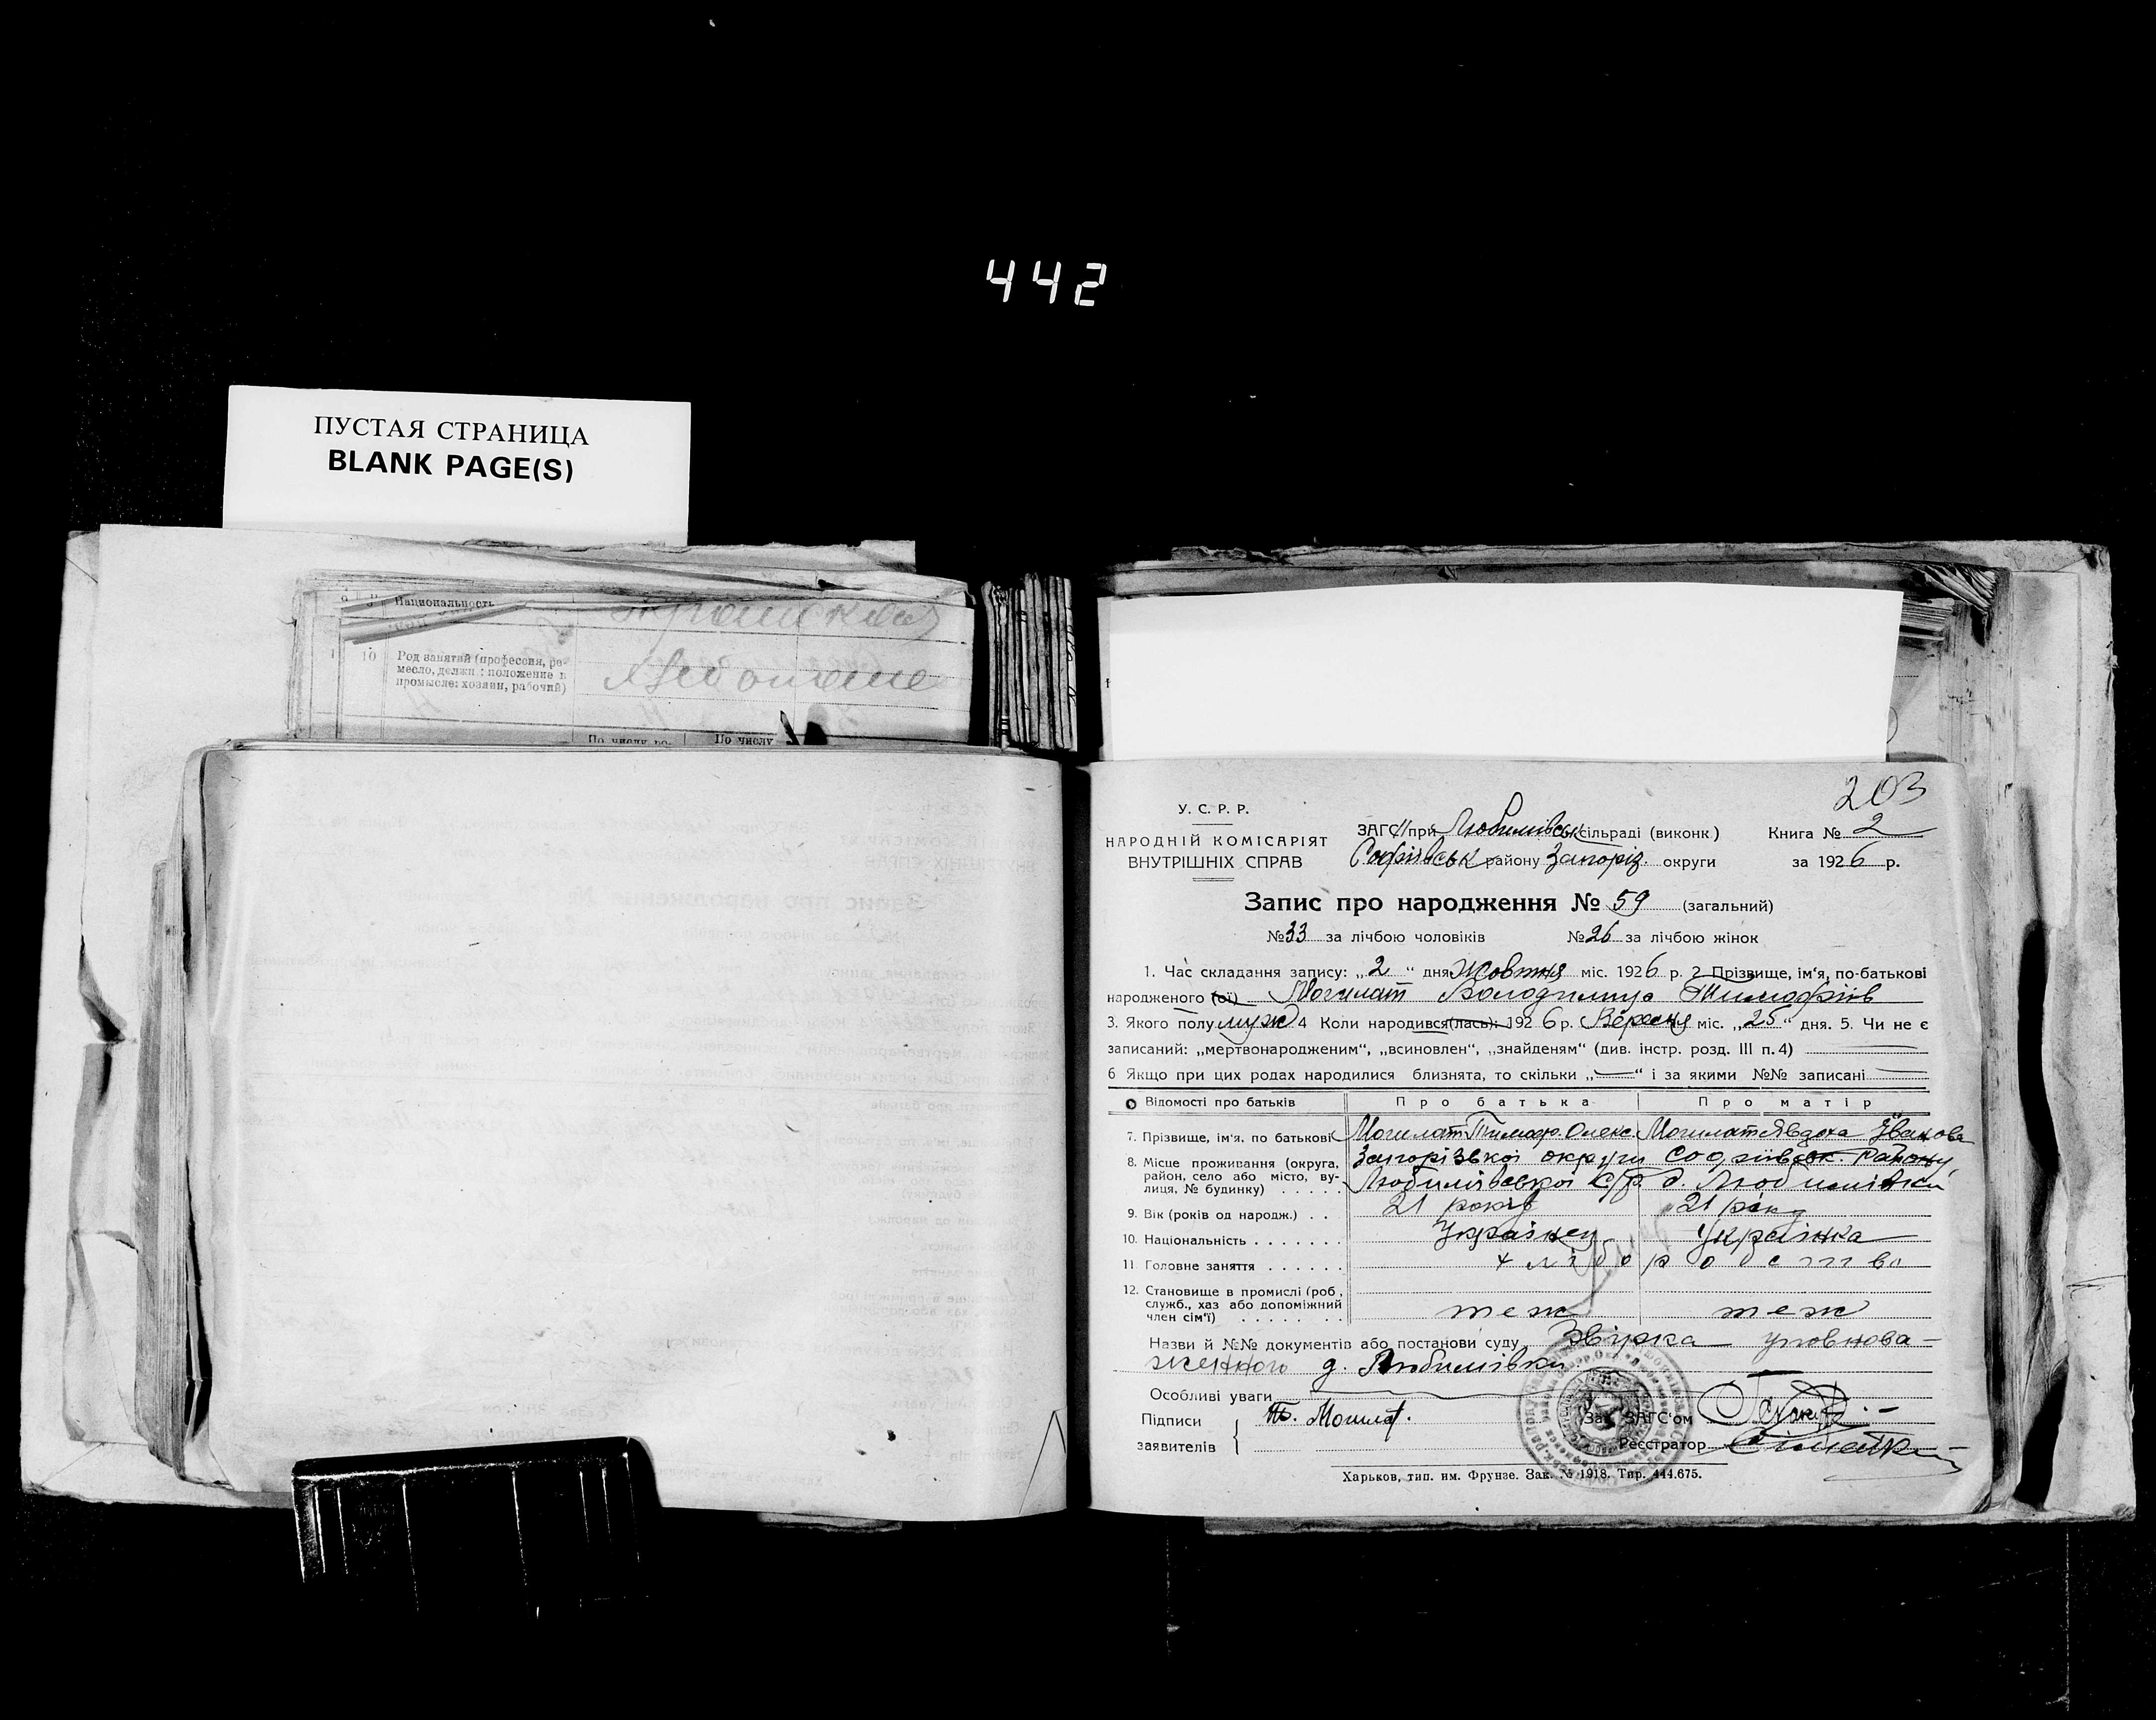 442
ПУСТАЯ СТРАНИЦА
BLANK PAGE(S)
Национальность
10 Род занятий (профессия, ре-
месло, должн.: положение в
промысле: хозяин, рабочий)
По числу По числу
203
У. С. Р. Р.
НАРОДНІЙ КОМІСАРІЯТ
ВНУТРІШНІХ СПРАВ
ЗАГС при Любимівськ сільраді (виконк) Книга № 2
Софіївськ району Запоріз. округи за 1926 р.
Запис про народження № 59 (загальний)
№ 33 за лічбою чоловіків № 26 за лічбою жінок
1. Час складання запису: „2“ дня Жовтня міс. 1926 р. 2. Прізвище, ім'я, по-батькові
народженого (ої) Могилат Володимир Тимофіїв
3. Якого полу муж 4 Коли народився(лась): 1926 р. Вересня міс. „25“ дня. 5. Чи не є
записаний: „мертвонародженим“, „всиновлен“, „знайденям“ (див. інстр. розд. III п. 4)
6 Якщо при цих родах народилися близнята, то скільки „—“ і за якими №№ записані
Відомості про батьків Про батька Про матір
7. Прізвище, ім'я, по батькові Могилат Тимоф. Олекс. Могилат Явдоха Іванова
8. Місце проживання (округа, Запорізької округи Софіївськ. Району,
район, село або місто, ву- Любимівської С/р д. Любимівки
лиця, № будинку)
9. Вік (років од народж.) 21 років 21 рік
10. Національність Українец Українка
11. Головне заняття хліборобство
12. Становище в промислі (роб.,
служб., хаз або допоміжний
член сім'ї) теж теж
Назви й №№ документів або постанови суду Звірка уповнова-
женного д. Любимівки
Особливі уваги
Підписи Т. Могилат.
заявителів
Зав. ЗАГС'ом
Реєстратор
Харьков, тип. им. Фрунзе. Зак. № 1918. Тир. 444.675.